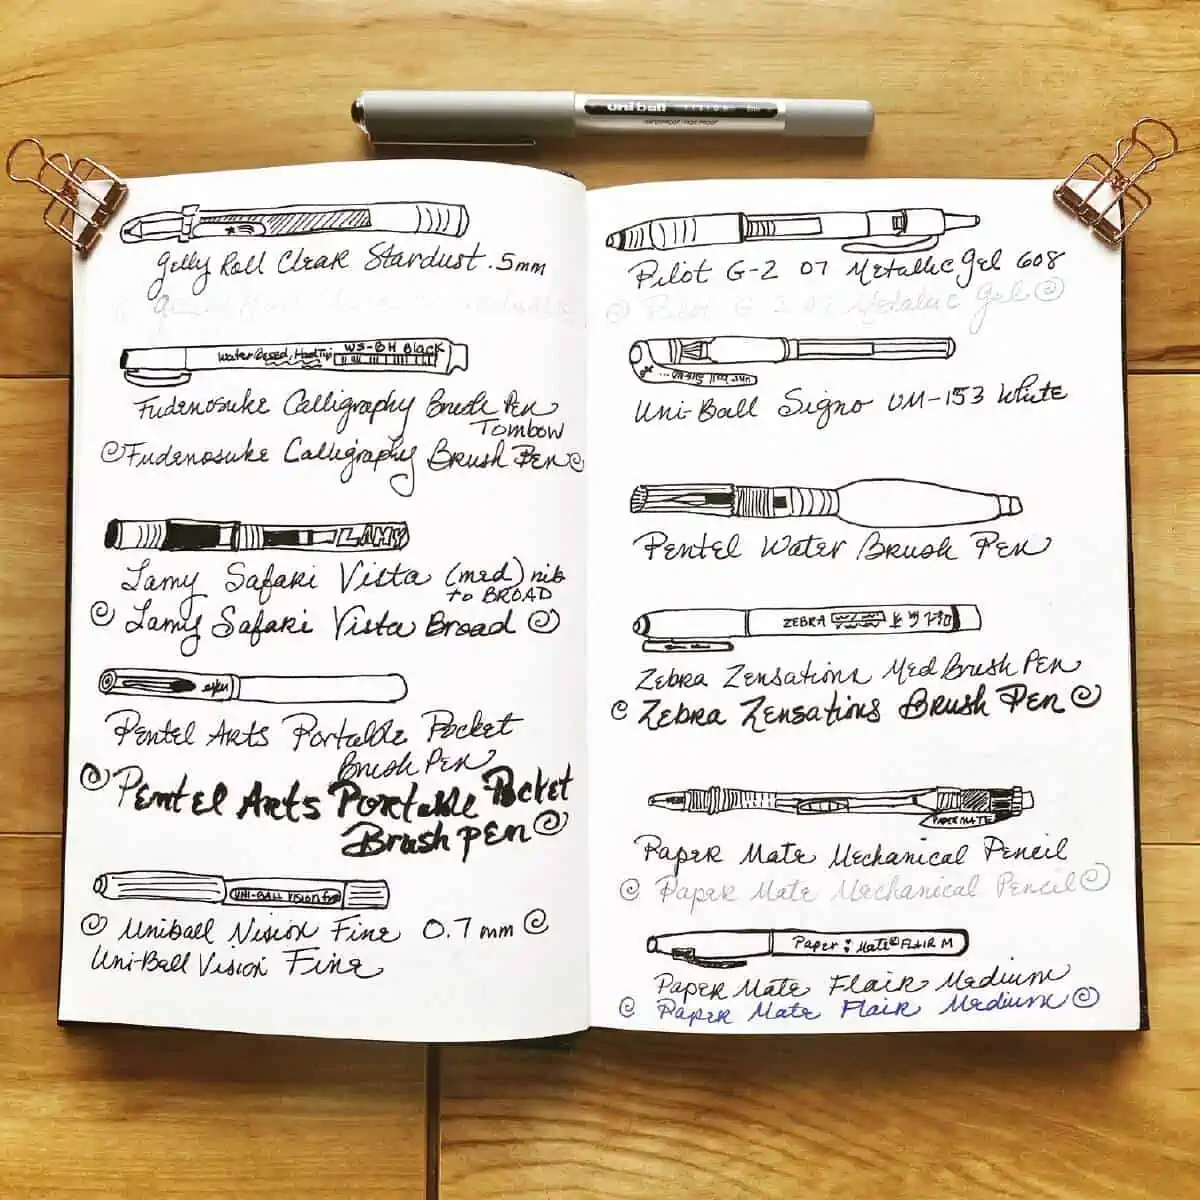 uni-ball VISION fine
WATERPROOF / FADE-PROOF
Gelly Roll Clear Stardust .5mm
Water Based, Hard Tip WS-BH Black
Fudenosuke Calligraphy Brush Pen
Tombow
Fudenosuke Calligraphy Brush Pen
LAMY
Lamy Safari Vista (med) nib
to BROAD
Lamy Safari Vista Broad
Pentel Arts Portable Pocket
Brush Pen
Pentel Arts Portable Pocket
Brush pen
UNI-BALL VISION fine
Uniball Vision Fine 0.7mm
Uni-Ball Vision Fine
Pilot G-2 07 Metallic gel 608
Pilot G 2 07 Metallic Gel
Uni-Ball Signo UM-153 White
Pentel Water Brush Pen
ZEBRA
Zebra Zensations Med Brush Pen
Zebra Zensations Brush Pen
PAPERMATE
Paper Mate Mechanical Pencil
Paper Mate Mechanical Pencil
Paper : Mate FLAIR M
Paper Mate Flair Medium
Paper Mate Flair Medium